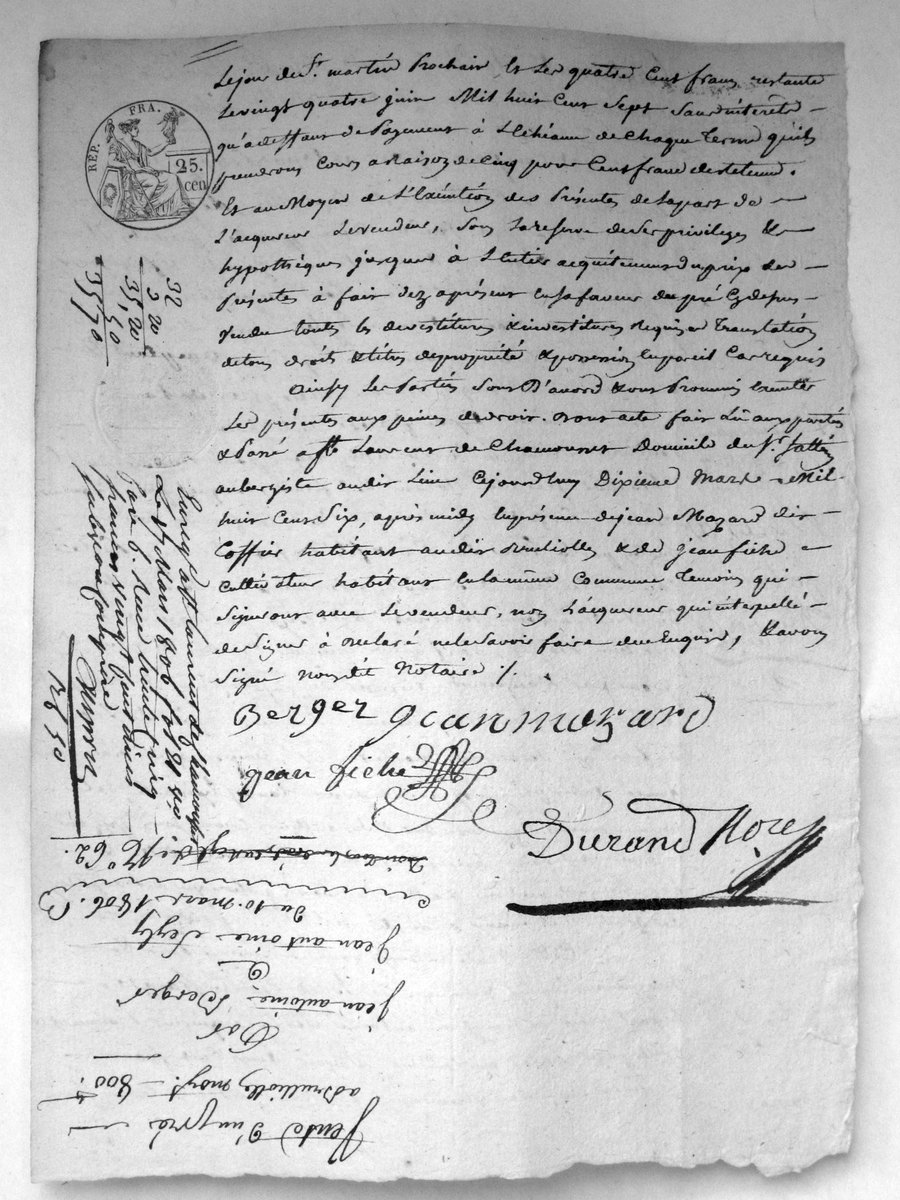 Le jour de St. martin Prochain Et Les quatre Cent franc restante
Le vingt quatre juin Mil huit Cent Sept Sans intérêts
qu'a deffaut de Payement à L'Echéance de Chaque Terme qu'ils
prendront Cours a Raison de Cinq pour Cent franc de retenue.
Et au Moyen de L'Exécution des Présentes de La part de
L'acquereur Le vendeur, Sous La reserve de Ses privileges &
hypothèques jusques à L'Entier acquitement du prix des
Présentes à fait dez aprésent En Sa faveur du pré Cy dessus
vendu toutes les devestitures & investitures Requises Translation
de tous droits & titres de propriété & possession En pareil Cas requis
Ainsy Les Parties Sont D'accord & ont Promis Exécuter
Les présentes aux peines de droit. Dont acte fait Lû aux parties
& Passé a St. Laurent de Chamousset Domicile du Sr.
aubergiste audit Lieu Cejourdhuy Dixieme Mars Mil
huit Cent Six, après midy En présence de jean Mazard
habitant audit Brullioles & de jean fiche
Cultivateur habitant En La même Commune Temoins qui
Signeront avec Le vendeur, non L'acquereur qui interpellé
de Signer à Déclaré ne Le Savoir faire de ce Enquis, & avons
Signé nous dit Notaire ./.
Berger jean mazard
jean fiche
Durand Nore
REP. FRA.
25.
cen
32
3 20
35,20
50
35 70
Enreg. a St. Laurent de Chamousset
Le 17 Mars 1806 fol 81
Reçu trente Cinq
francs vingt Centimes
Subvention comprise
N° 62.
Du 10. mars 1806.
jean antoine
a
jean antoine Berger
Par
a Brullioles moyt. 800 f
Vente D'un pré